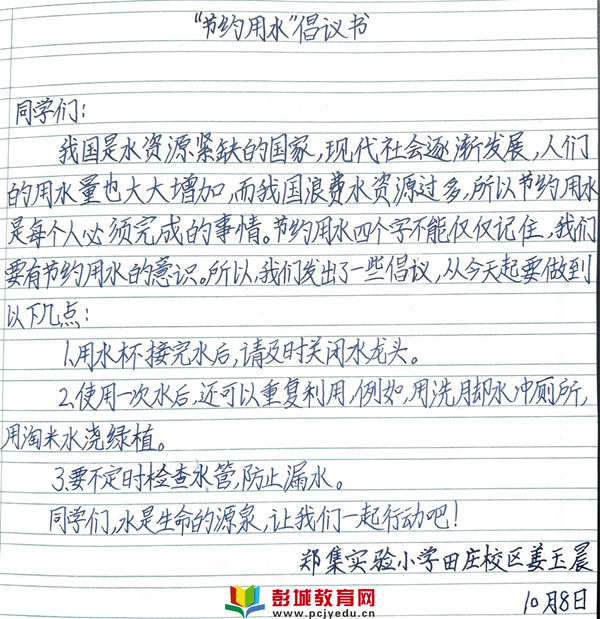 “节约用水”倡议书
同学们：
我国是水资源紧缺的国家，现代社会逐渐发展，人们
的用水量也大大增加，而我国浪费水资源过多，所以节约用水
是每个人必须完成的事情。节约用水四个字不能仅仅记住，我们
要有节约用水的意识。所以，我们发出了一些倡议，从今天起要做到
以下几点：
1.用水杯接完水后，请及时关闭水龙头。
2.使用一次水后，还可以重复利用，例如，用洗月却水冲厕所，
用淘米水浇绿植。
3.要不定时检查水管，防止漏水。
同学们，水是生命的源泉，让我们一起行动吧！
郑集实验小学田庄校区姜玉晨
10月8日
彭城教育网
www.pcjyedu.cn